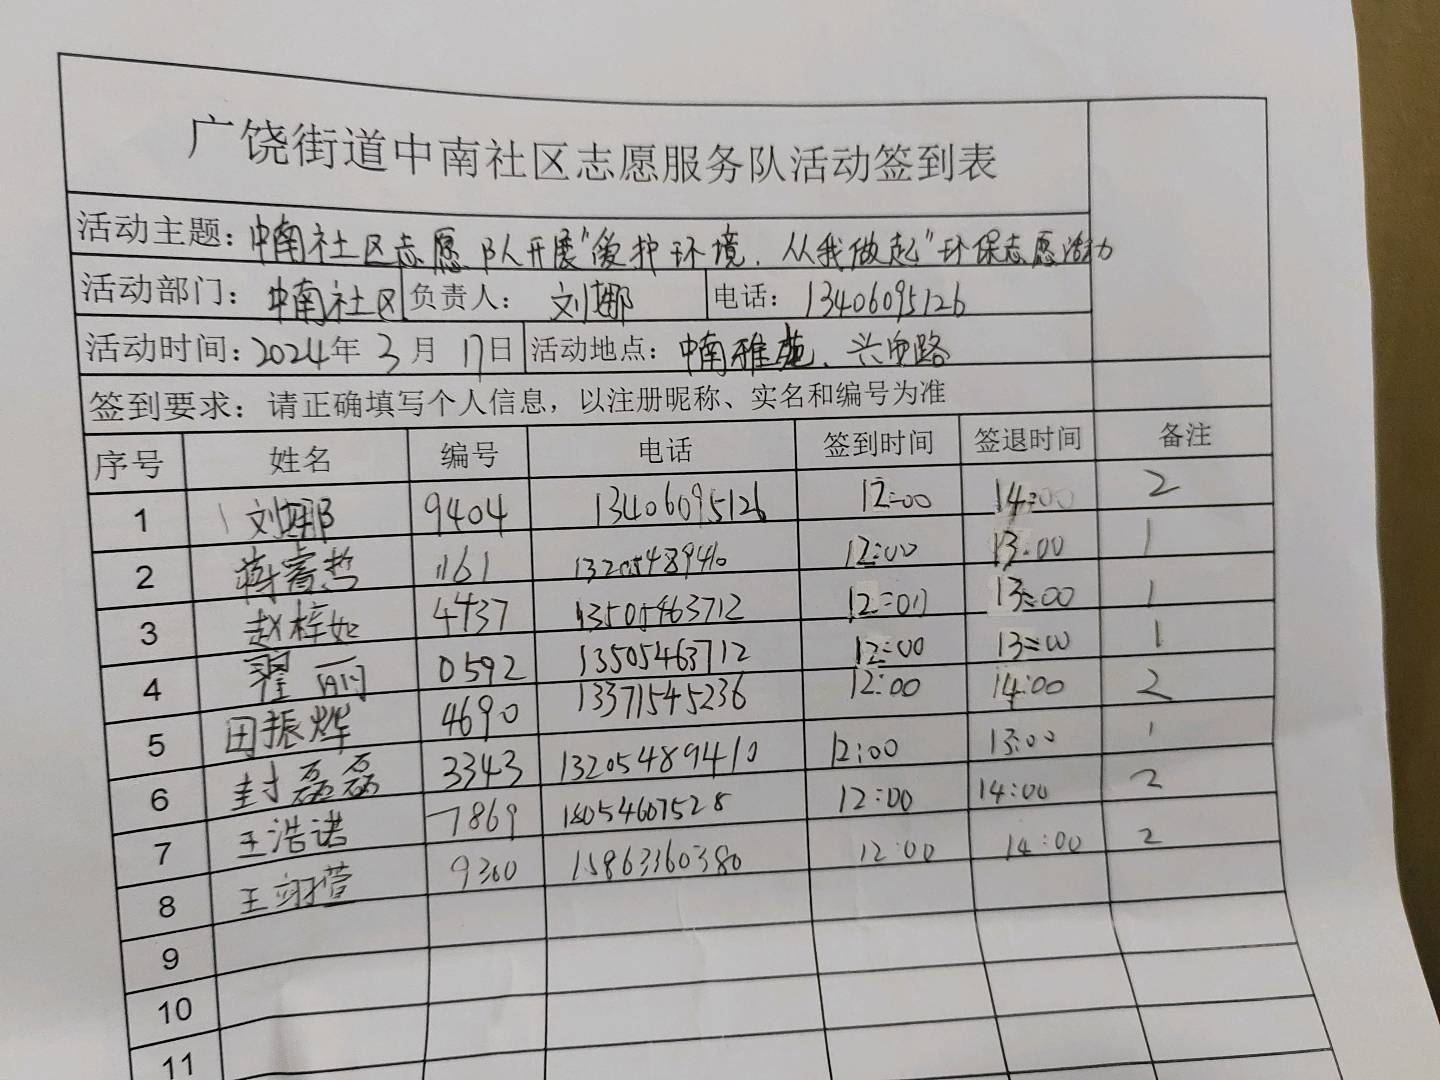 广饶街道中南社区志愿服务队活动签到表
活动主题：中南社区志愿队开展"爱护环境，从我做起"环保志愿活动
活动部门：中南社区 负责人：刘娜 电话：13406095126
活动时间：2024年3月17日 活动地点：中南雅苑、兴安路
签到要求：请正确填写个人信息，以注册昵称、实名和编号为准
序号 姓名 编号 电话 签到时间 签退时间 备注
1 刘娜 9404 13406095126 12:00 14:00 2
2 蒋睿哲 1161 13205489410 12:00 13:00 1
3 赵梓如 4437 13505463712 12:00 13:00 1
4 翟丽 0592 13505463712 12:00 13:00 1
5 田振烨 4690 13371545236 12:00 14:00 2
6 封磊磊 3343 13205489410 12:00 13:00 1
7 王浩诺 7869 18054607528 12:00 14:00 2
8 王翊萱 9360 15863360380 12:00 14:00 2
9
10
11